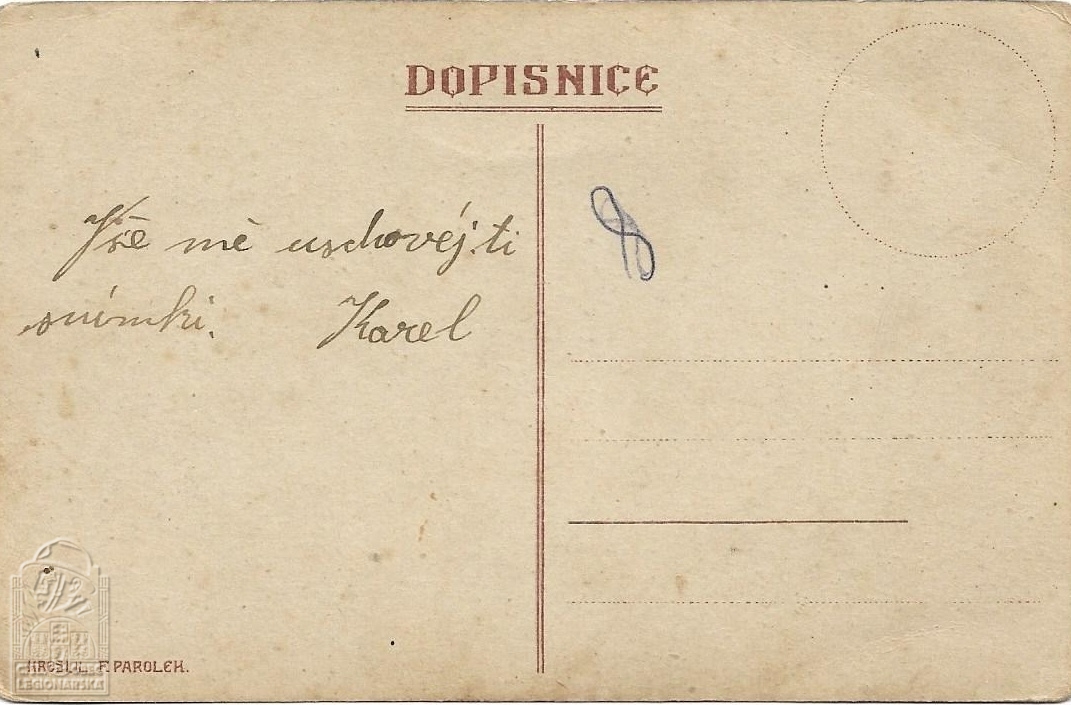 DOPISNICE
Vše mě uschovéj.ti
snímki. Karel
8
F. PAROLEK.
LEGIONÁŘSKÁ